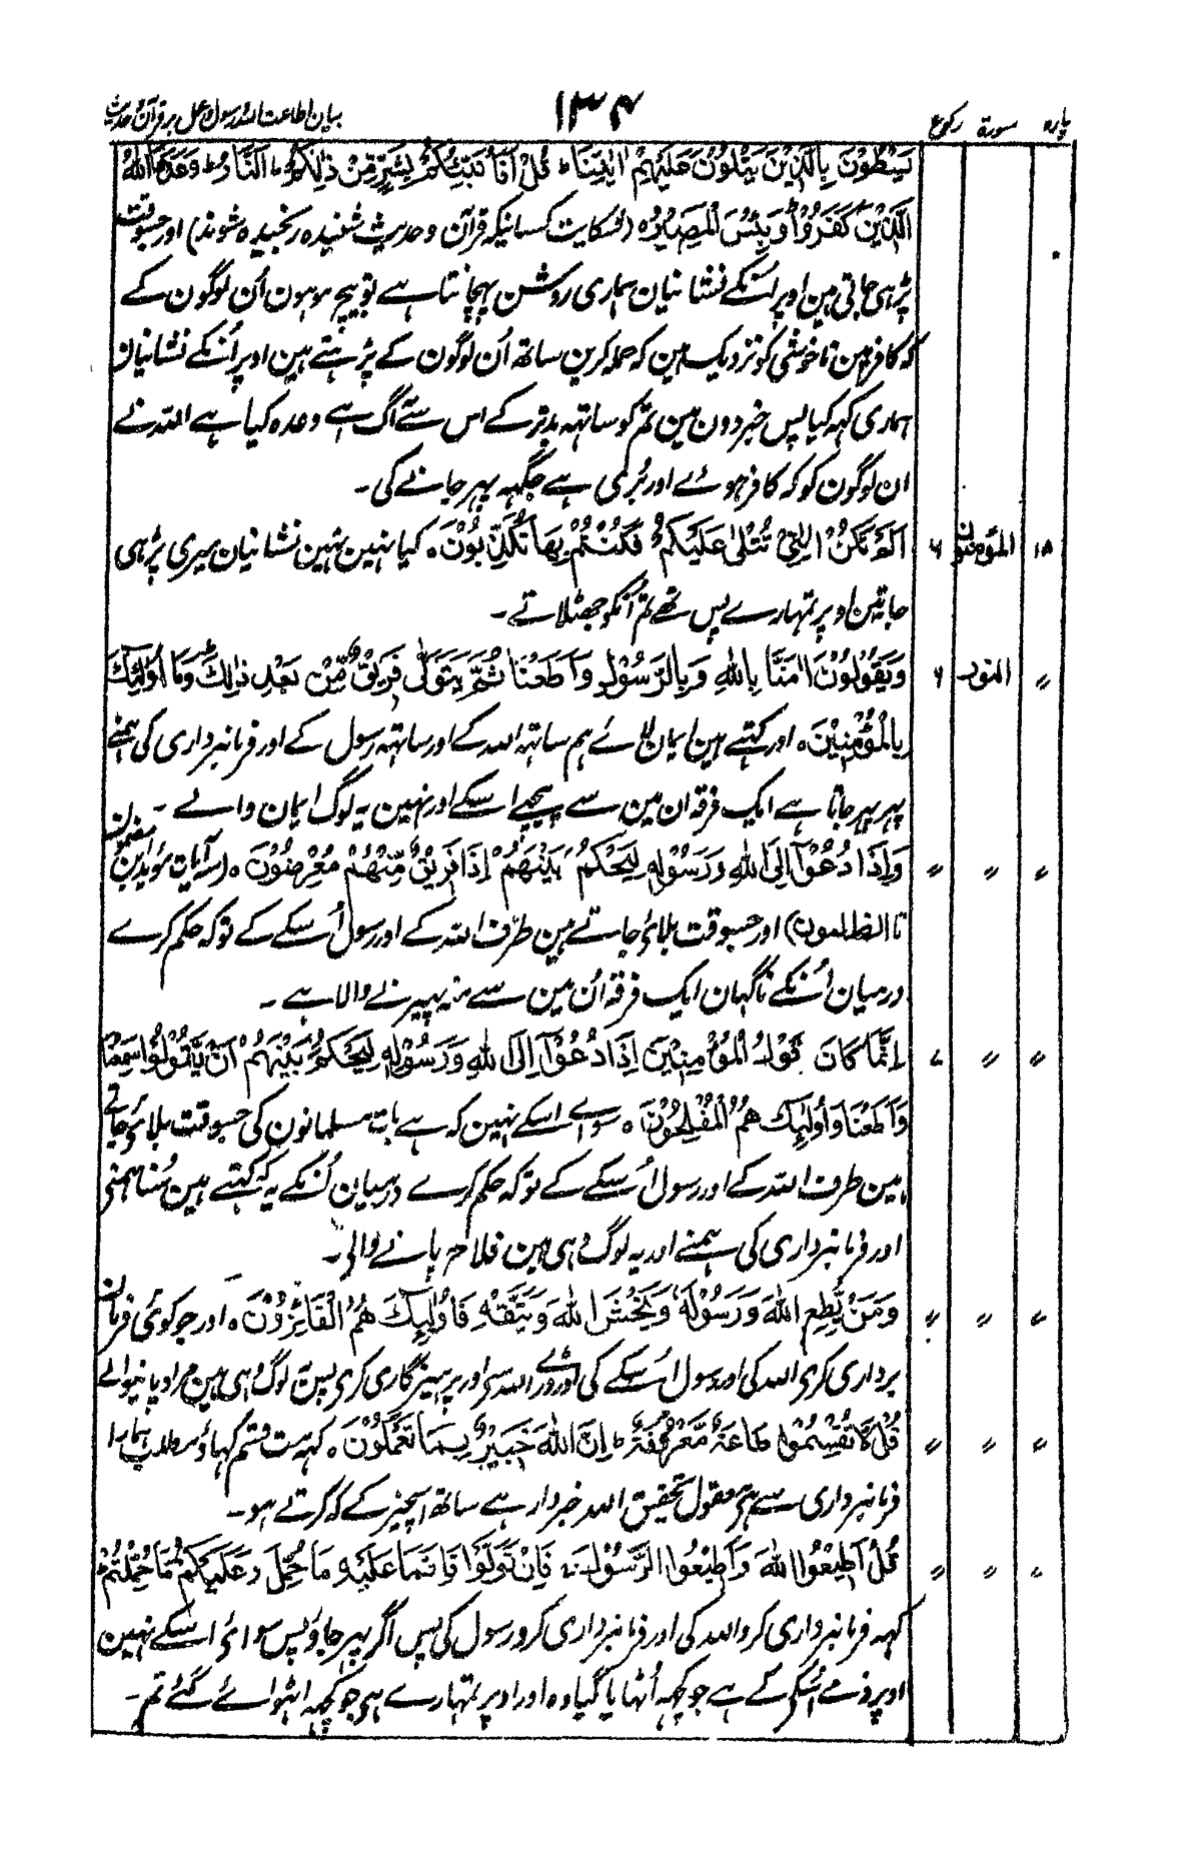 پارہ سورۃ رکوع ۱۳۴ بیان اطاعت اللہ رسول و عمل بر قرآن و حدیث
يَسْطُوْنَ بِالَّذِيْنَ يَتْلُوْنَ عَلَيْهِمْ اٰيٰتِنَا ؕ قُلْ اَفَاُنَبِّئُكُمْ بِشَرٍّ مِّنْ ذٰلِكُمْ ؕ اَلنَّارُ ؕ وَعَدَهَا اللّٰهُ
الَّذِيْنَ كَفَرُوْا ؕ وَبِئْسَ الْمَصِيْرُ ہ (شکایت کسانیکہ قرآن و حدیث شنیدہ رنجیدہ شوند) اور جسوقت
پڑہی جاتی ہین اوپر اُنکے نشانیان ہماری روشن پہچانتا ہے تو بیچ موہون اُن لوگون کے
کہ کافر ہین ناخوشی کو نزدیک ہین کہ حملہ کرین ساتھ اُن لوگون کے پڑہتے ہین اوپر اُنکے نشانیان
ہماری کہہ کیا پس خبر دون مین تمکو ساتہہ بدتر کے اس سے آگ ہے وعدہ کیا ہے اللہ نے
ان لوگون کو کہ کافر ہوے اور بُری ہے جگہہ پہر جانے کی۔
۱۸ المؤمنون ۶ اَلَمْ تَكُنْ اٰيٰتِيْ تُتْلٰى عَلَيْكُمْ فَكُنْتُمْ بِهَا تُكَذِّبُوْنَ ہ کیا نہین تہین نشانیان میری پڑہی
جاتین اوپر تمہارے پس تھے تم اُنکو جھٹلاتے۔
〃 النور ۶ وَيَقُوْلُوْنَ اٰمَنَّا بِاللّٰهِ وَبِالرَّسُوْلِ وَاَطَعْنَا ثُمَّ يَتَوَلّٰى فَرِيْقٌ مِّنْهُمْ مِّنْ بَعْدِ ذٰلِكَ ؕ وَمَا اُولٰٓئِكَ
بِالْمُؤْمِنِيْنَ ہ اور کہتے ہین ایمان لائے ہم ساتہہ اللہ کے اور ساتہہ رسول کے اور فرمانبرداری کی ہمنے
پہر پہر جاتا ہے ایک فرقہ ان مین سے پیچہے اسکے اور نہین یہ لوگ ایمان والے۔
〃 〃 〃 وَاِذَا دُعُوْٓا اِلَى اللّٰهِ وَرَسُوْلِهٖ لِيَحْكُمَ بَيْنَهُمْ اِذَا فَرِيْقٌ مِّنْهُمْ مُّعْرِضُوْنَ ہ (سہ آیات مؤید این مضمون
تا الظالمون) اور جسوقت بلائے جاتے ہین طرف اللہ کے اور رسول اُسکے کے توکہ حکم کرے
درمیان اُنکے ناگہان ایک فرقہ اُن مین سے منہ پہیرنے والا ہے۔
〃 〃 ۷ اِنَّمَا كَانَ قَوْلَ الْمُؤْمِنِيْنَ اِذَا دُعُوْٓا اِلَى اللّٰهِ وَرَسُوْلِهٖ لِيَحْكُمَ بَيْنَهُمْ اَنْ يَّقُوْلُوْا سَمِعْنَا
وَاَطَعْنَا وَاُولٰٓئِكَ هُمُ الْمُفْلِحُوْنَ ہ سواے اسکے نہین کہ ہے بات مسلمانون کی جسوقت بلائے جاتے
ہین طرف اللہ کے اور رسول اُسکے کے توکہ حکم کرے درمیان اُنکے یہ کہ کہتے ہین سُنا ہمنے
اور فرمانبرداری کی ہمنے اور یہ لوگ وہی ہین فلاح پانے والی۔
〃 〃 〃 وَمَنْ يُّطِعِ اللّٰهَ وَرَسُوْلَهٗ وَيَخْشَ اللّٰهَ وَيَتَّقْهِ فَاُولٰٓئِكَ هُمُ الْفَآئِزُوْنَ ہ اور جو کوئی فرمان
برداری کری اللہ کی اور رسول اُسکے کی اور ڈرے اللہ سی اور پرہیزگاری کری پس یہ لوگ وہی ہین مراد پانیوالے
〃 〃 〃 قُلْ لَّا تُقْسِمُوْا طَاعَةٌ مَّعْرُوْفَةٌ ؕ اِنَّ اللّٰهَ خَبِيْرٌۢ بِمَا تَعْمَلُوْنَ ہ کہہ مت قسم کہاؤ مطلب ہمارا
فرمانبرداری سے ہی معقول تحقیق اللہ خبردار ہے ساتھ اسچیز کے کہ کرتے ہو۔
〃 〃 〃 قُلْ اَطِيْعُوا اللّٰهَ وَاَطِيْعُوا الرَّسُوْلَ ۚ فَاِنْ تَوَلَّوْا فَاِنَّمَا عَلَيْهِ مَا حُمِّلَ وَعَلَيْكُمْ مَّا حُمِّلْتُمْ ؕ
کہہ فرمانبرداری کرو اللہ کی اور فرمانبرداری کرو رسول کی پس اگر پہر جاؤ پس سوائے اسکے نہین
اوپر ذمے اُسکے کے ہے جو کچہہ اُٹھایا گیا وہ اور اوپر تمہارے ہی جو کچہہ اٹھوائے گئے تم۔